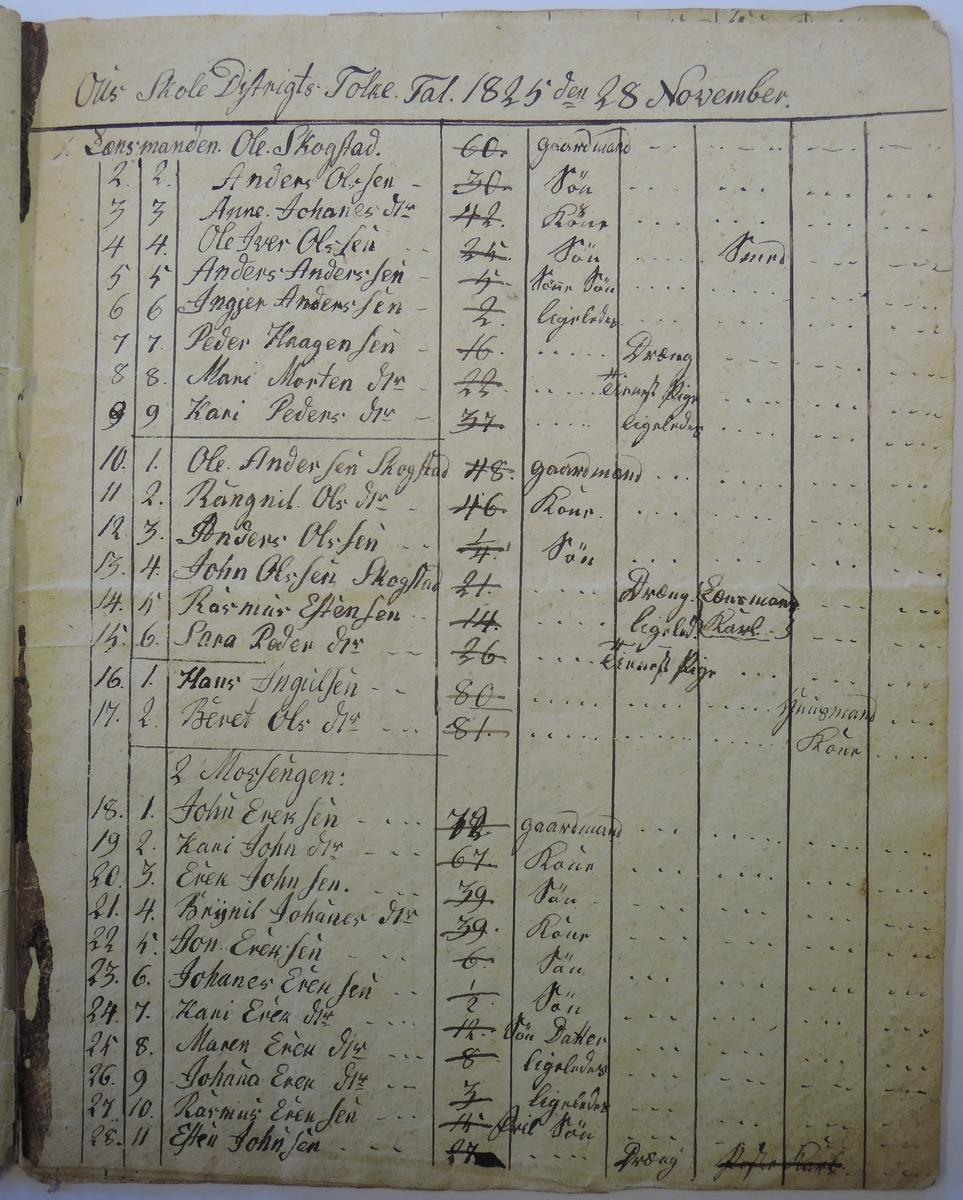 Ous Skole Distrigts Folke. Tal. 1825 den 28 November.
1. Lænsmanden. Ole. Skogstad. 60. gaardmand
2. 2. Anders Olssen 30. Sön
3 3 Anne. Johanes dtr 42. Kone
4 4. Ole Iver Olssen 25. Sön Smed
5 5 Anders Anderssen 5. Söne Sön
6 6 Ingjer Anderssen 2. ligeledes
7 7. Peder Haagensen 16 Dræng
8 8. Mari Morten dtr 22 Tienest Pige
9 9 Kari Peders dtr 37. ligeledes
10. 1. Ole. Andersen Skogstad 48. gaardmand
11 2. Rangnil. Ols dtr 46 Kone.
12. 3. Anders Olssen 1/4 Sön
13. 4. John Olssen Skogstad 21. Dræng. Lænsmand
14. 5 Rasmus Estensen 14. ligeled. Karl
15 6. Sara Peder dtr 26 Tienest Pige
16 1. Hans Ingulsen 80 Huusmand
17. 2. Beret Ols dtr 81. Kone
2 Mossengen:
18. 1. John Ereksen 72. gaardmand
19 2. Kari John dtr 67. Kone
20. 3. Erek Johnsen. 39 Sön
21. 4. Brÿnil Johanes dtr 39. Kone
22 5. Jon. Ereksen 6 Sön
23. 6. Johanes Ereksen 1/2 Sön
24. 7. Kari Erek dtr 12. Sön Datter
25 8. Maren Erek dtr 8 ligeledes
26. 9 Johana Erek dtr 3 ligeledes
27. 10. Rasmus Ereksen Sön
28. 11 Esten Johnsen 27. Dræng Karl.